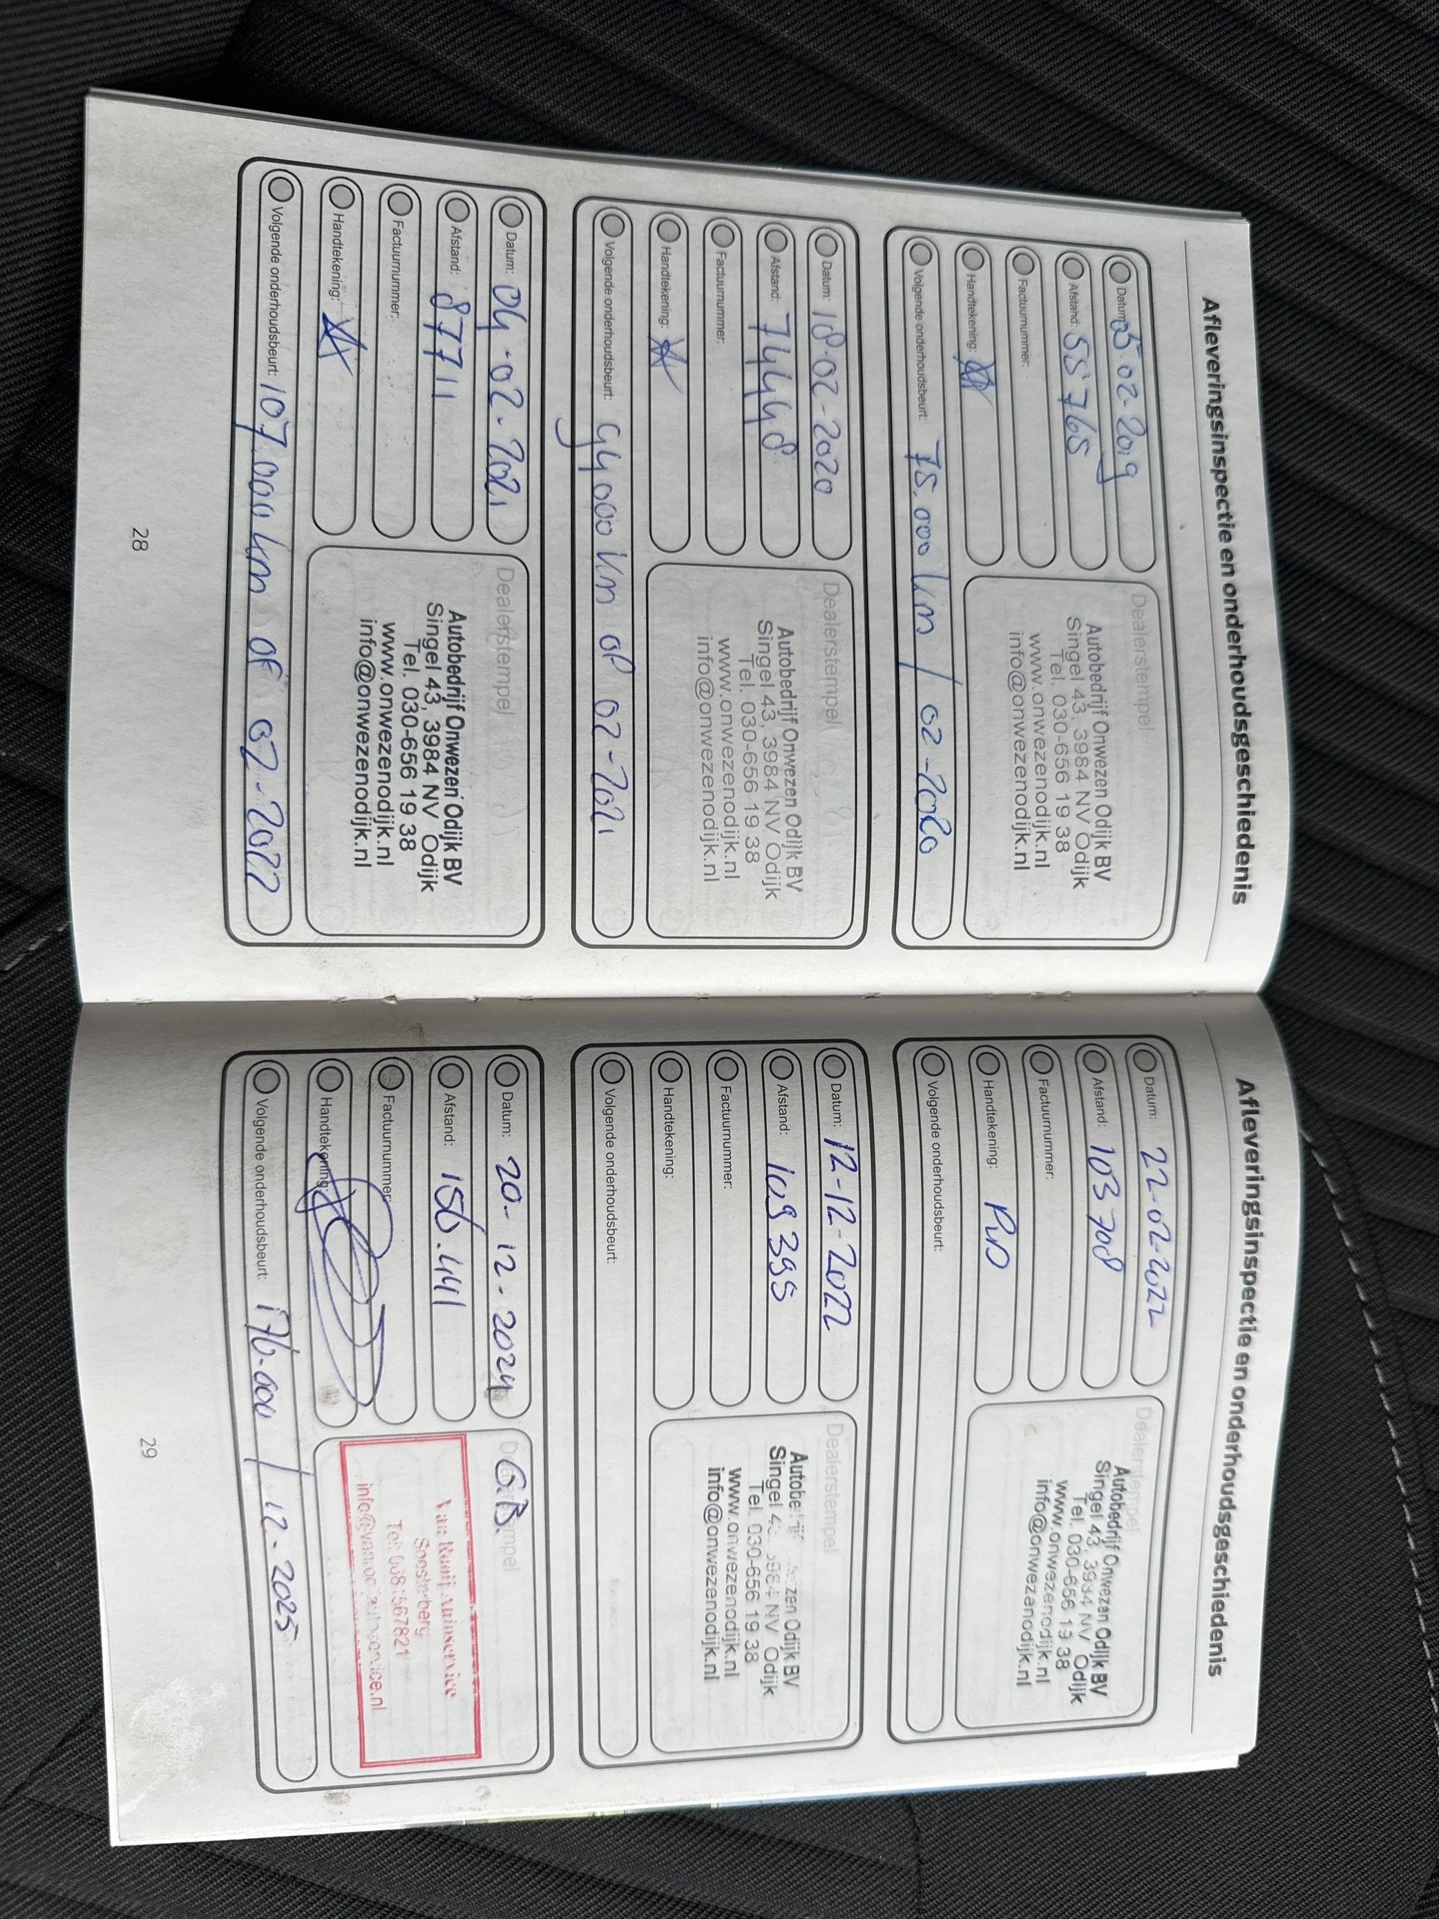 Afleveringsinspectie en onderhoudsgeschiedenis
Datum: 05-02-2019
Afstand: 55765
Factuurnummer:
Handtekening:
Dealerstempel
Autobedrijf Onwezen Odijk BV
Singel 43, 3984 NV Odijk
Tel. 030-656 19 38
www.onwezenodijk.nl
info@onwezenodijk.nl
Volgende onderhoudsbeurt: 75.000 km / 02-2020
Datum: 18-02-2020
Afstand: 74448
Factuurnummer:
Handtekening:
Dealerstempel
Autobedrijf Onwezen Odijk BV
Singel 43, 3984 NV Odijk
Tel. 030-656 19 38
www.onwezenodijk.nl
info@onwezenodijk.nl
Volgende onderhoudsbeurt: 94000 km of 02-2021
Datum: 04-02-2021
Afstand: 87711
Factuurnummer:
Handtekening:
Dealerstempel
Autobedrijf Onwezen Odijk BV
Singel 43, 3984 NV Odijk
Tel. 030-656 19 38
www.onwezenodijk.nl
info@onwezenodijk.nl
Volgende onderhoudsbeurt: 107.000 km of 02-2022
28
Afleveringsinspectie en onderhoudsgeschiedenis
Datum: 22-02-2022
Afstand: 103708
Factuurnummer:
Handtekening:
Dealerstempel
Autobedrijf Onwezen Odijk BV
Singel 43, 3984 NV Odijk
Tel. 030-656 19 38
www.onwezenodijk.nl
info@onwezenodijk.nl
Volgende onderhoudsbeurt:
Datum: 12-12-2022
Afstand: 109395
Factuurnummer:
Handtekening:
Dealerstempel
Autobedrijf Onwezen Odijk BV
Singel 43, 3984 NV Odijk
Tel. 030-656 19 38
www.onwezenodijk.nl
info@onwezenodijk.nl
Volgende onderhoudsbeurt:
Datum: 20-12-2024
Afstand: 156.441
Factuurnummer:
Handtekening:
Dealerstempel
G.B.
Autoservice
Soesterberg
Volgende onderhoudsbeurt: 176.000 / 12-2025
29